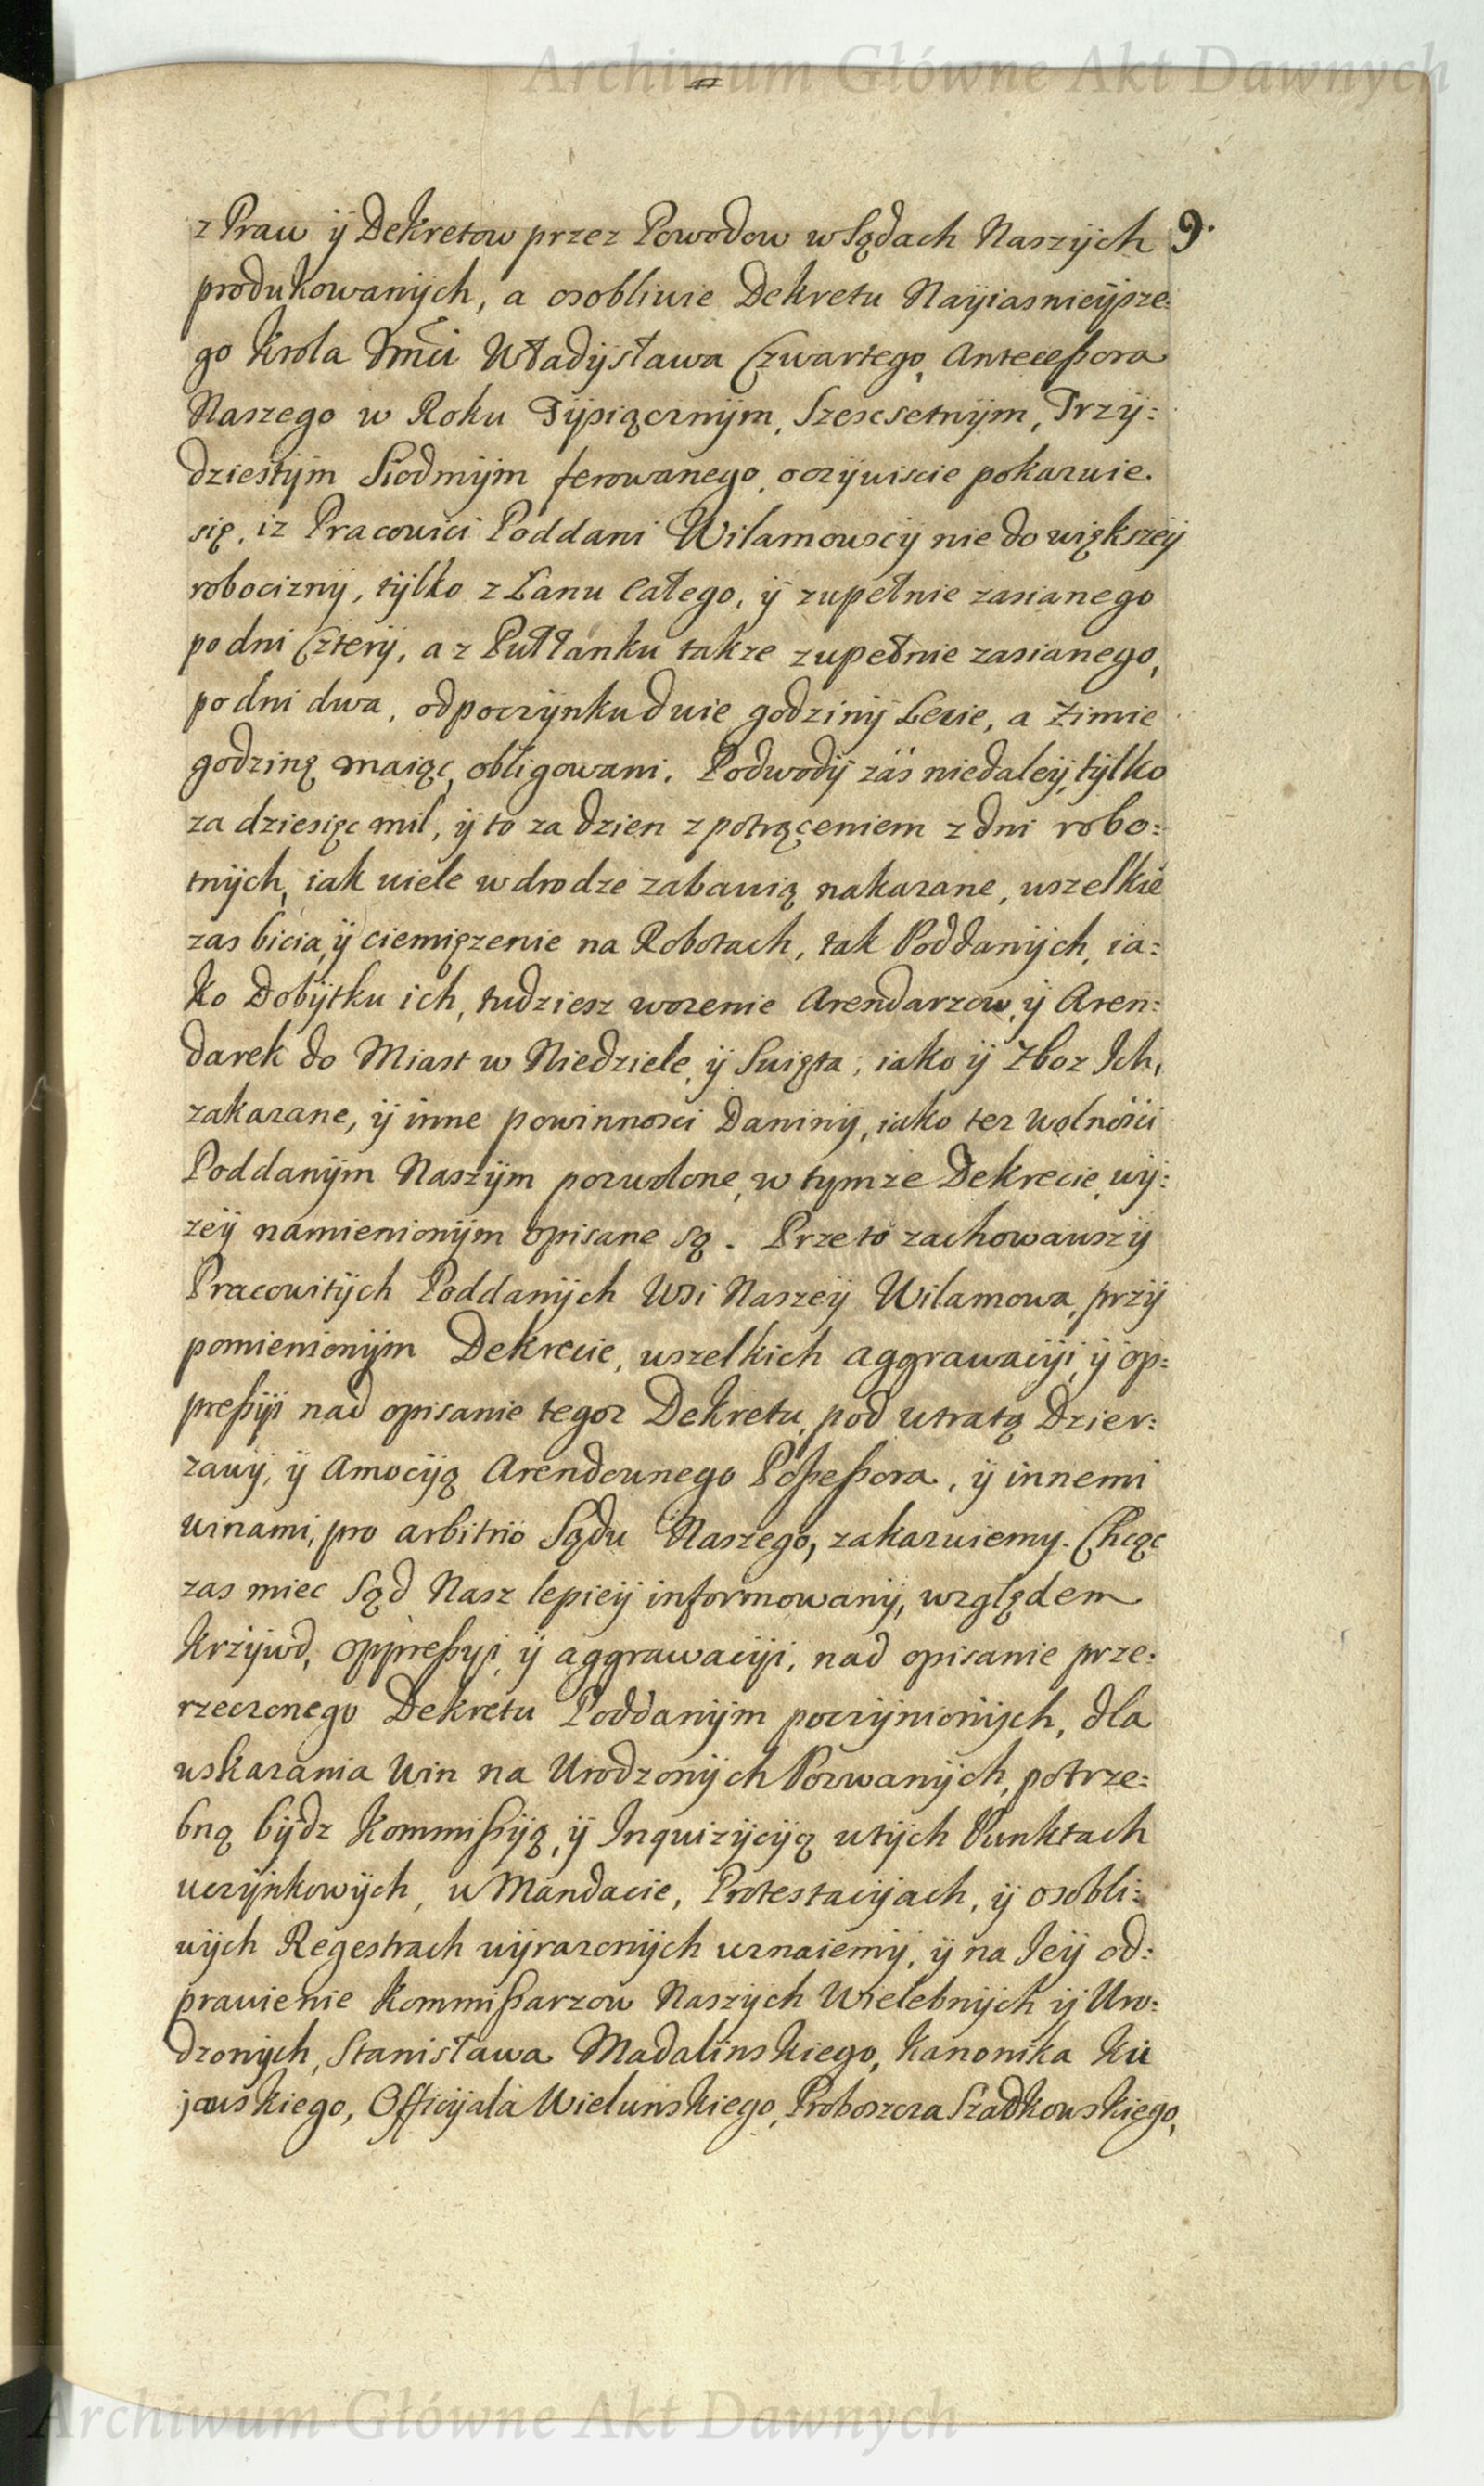 Archiwum Główne Akt Dawnych
z Praw ÿ Dekretow przez Powodow w Sądach Naszÿch 9.
produkowanÿch, a osobliwie Dekretu Naÿiasnieÿsze=
go Krola Jmći Władÿsława Czwartego, Antecessora
Naszego w Roku Tÿsiącznÿm, Szescsetnÿm, Trzÿ=
dziestÿm Siodmÿm ferowanego, oczÿwiscie pokazuie.
się, iz Pracowici Poddani Wilamowscÿ nie do większeÿ
robociznÿ, tÿlko z Łanu całego, ÿ zupełnie zasianego
po dni Czterÿ, a z Pułłanku takze zupełnie zasianego,
po dni dwa, odpoczÿnku dwie godzinÿ Lecie, a Zimie
godzinę maiąc, obligowani. Podwodÿ zaś niedaleÿ, tÿlko
za dziesięc mil, ÿ to za dzien z potrąceniem z dni robo=
tnÿch, iak wiele w drodze zabawią nakazane, wszelkie
zas bicia, ÿ ciemięzenie na Robotach, tak Poddanÿch, ia=
ko Dobÿtku ich, tudziesz wozenie Arendarzow, ÿ Aren=
darek do Miast w Niedziele, ÿ Swięta, iako ÿ Zboz Ich,
zakazane, ÿ inne powinnosci Daninÿ, iako tez wolności
Poddanÿm Naszÿm pozwolone, w tymze Dekrecie, wÿ=
zeÿ namienionÿm opisane są. Przeto zachowawszÿ
Pracowitÿch Poddanÿch Wsi Naszeÿ Wilamowa, przÿ
pomienionÿm Dekrecie, wszelkich aggrawacÿi, ÿ op=
pressÿi nad opisanie tegoz Dekretu, pod utratą Dzier=
zawÿ, ÿ Amocÿą Arendownego Possessora, ÿ innemi
winami, pro arbitrio Sądu Naszego, zakazuiemy. Chcąc
zas miec Sąd Nasz lepieÿ informowanÿ, względem
Krzÿwd, oppressyi, ÿ aggrawacÿi, nad opisanie prze=
rzeczonego Dekretu Poddanÿm poczÿnionÿch, dla
wskazania Win na Urodzonÿch Pozwanÿch, potrze=
bną bÿdz Kommissÿą, ÿ Inquizÿcÿą w tÿch Punktach
uczÿnkowÿch, w Mandacie, Protestacÿach, ÿ osobli=
wÿch Regestrach wÿrazonÿch uznaiemÿ, ÿ na Ieÿ od=
prawienie Kommissarzow Naszÿch Wielebnÿch ÿ Uro=
dzonÿch, Stanisława Madalinskiego, Kanonika Ku
jawskiego, Officÿała Wielunskiego, Proboszcza Szadkowskiego,
Archiwum Główne Akt Dawnych